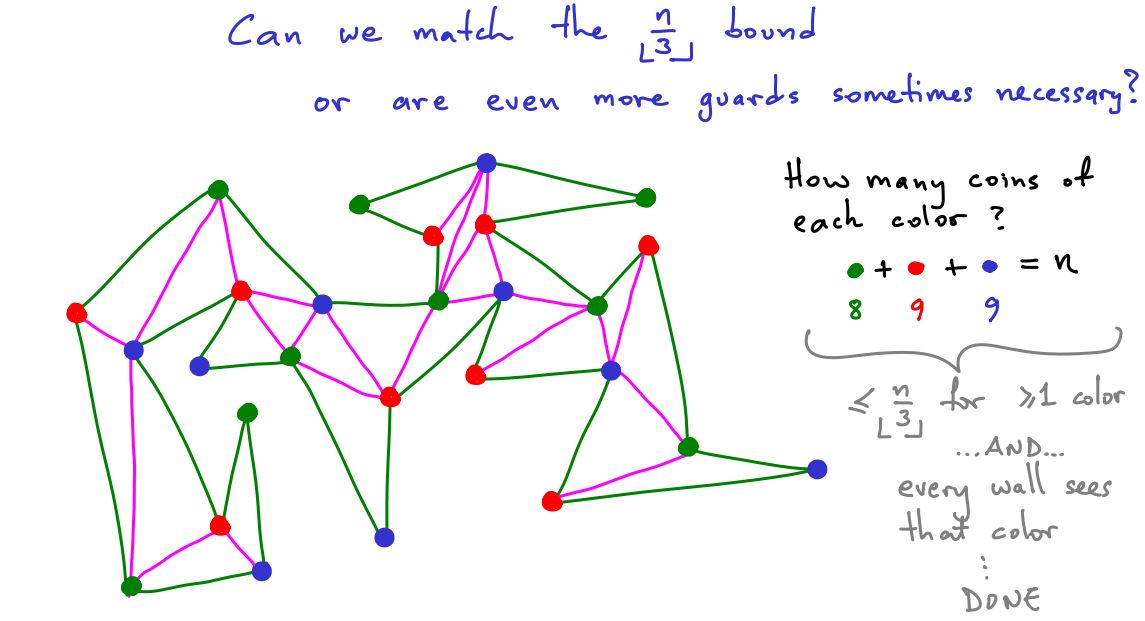 Can we match the ⌊n/3⌋ bound
or are even more guards sometimes necessary?
How many coins of
each color ?
● + ● + ● = n
8 9 9
≤ ⌊n/3⌋ for ≥1 color
...AND...
every wall sees
that color
⋮
DONE